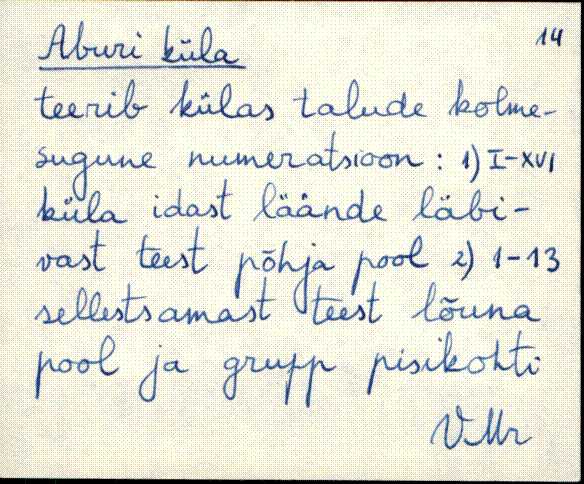 14
Aburi küla
teerib külas talude kolme-
sugune numeratsioon : 1) I-XVI
küla idast läände läbi-
vast teest põhja pool 2) 1-13
sellestsamast teest lõuna
pool ja grupp pisikohti
VMr